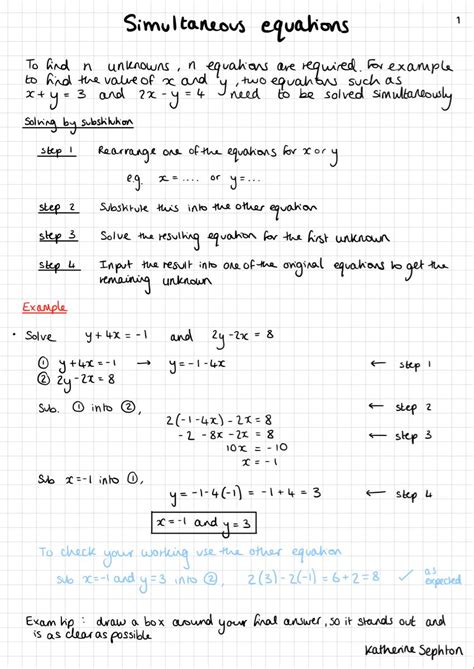 Simultaneous equations
1
To find n unknowns, n equations are required. For example
to find the value of x and y, two equations such as
x + y = 3 and 2x - y = 4 need to be solved simultaneously
Solving by substitution
step 1 Rearrange one of the equations for x or y
e.g. x = .... or y = ....
step 2 Substitute this into the other equation
step 3 Solve the resulting equation for the first unknown
step 4 Input the result into one of the original equations to get the
remaining unknown
Example
• Solve y + 4x = -1 and 2y - 2x = 8
① y + 4x = -1 → y = -1 - 4x ← step 1
② 2y - 2x = 8
Sub. ① into ②,
2(-1-4x) - 2x = 8 ← step 2
-2 - 8x - 2x = 8 ← step 3
10x = -10
x = -1
Sub x = -1 into ①,
y = -1 - 4(-1) = -1 + 4 = 3 ← step 4
x = -1 and y = 3
To check your working use the other equation
sub x = -1 and y = 3 into ②, 2(3) - 2(-1) = 6 + 2 = 8 ✓ as expected
Exam tip : draw a box around your final answer, so it stands out and
is as clear as possible
Katherine Sephton